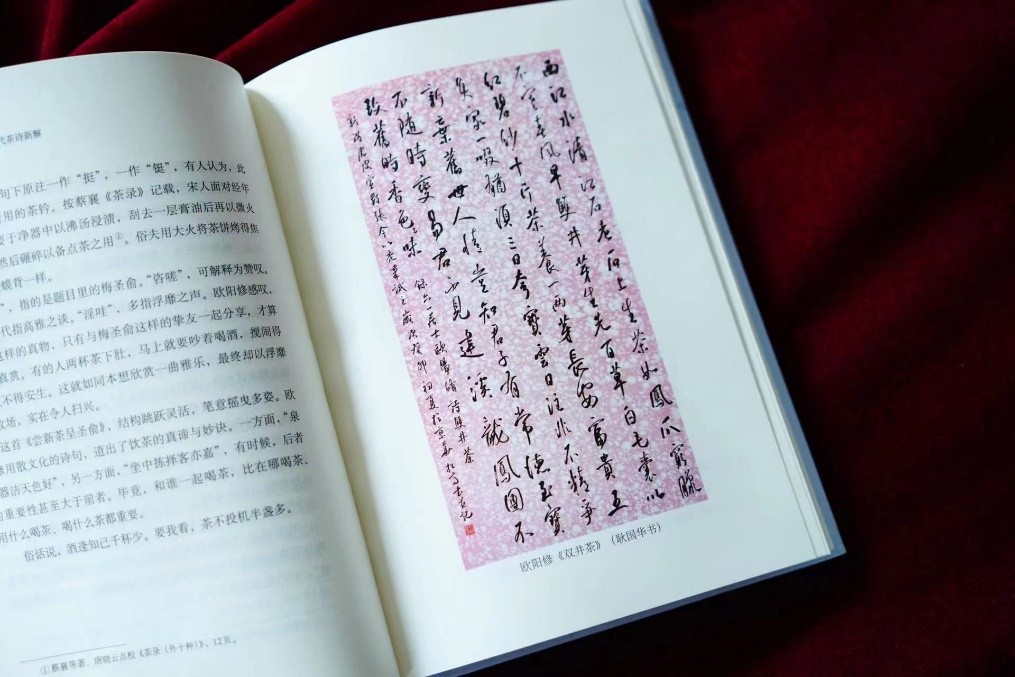 代茶诗新解
句下原注一作“挺”，一作“铤”，有人认为，此
所用的茶铃。按蔡襄《茶录》记载，宋人面对经年
要于净器中以沸汤浸渍，刮去一层膏油后再以微火
然后碾碎以备点茶之用①。俗夫用大火将茶饼烤得焦
蟆背一样。
”，指的是题目里的梅圣俞。“咨嗟”，可解释为赞叹。
代指高雅之谈。“淫哇”，多指浮靡之声。欧阳修感叹，
这样的真物，只有与梅圣俞这样的挚友一起分享，才算
真赏。有的人两杯茶下肚，马上就要吵着喝酒，搅闹得
不得安生。这就如同本想欣赏一曲雅乐，最终却以浮靡
收场，实在令人扫兴。
这首《尝新茶呈圣俞》，结构跳跃灵活，笔意摇曳多姿。欧
修用散文化的诗句，道出了饮茶的真谛与妙诀。一方面，“泉
器洁天色好”，另一方面，“坐中拣择客亦嘉”，有时候，后者
的重要性甚至大于前者。毕竟，和谁一起喝茶，比在哪喝茶、
用什么喝茶、喝什么茶都重要。
俗话说，酒逢知己千杯少。要我看，茶不投机半盏多。
①蔡襄等著，唐晓云点校《茶录（外十种）》，12页。
西江水清江石老石上生茶如鳳爪窮臘
不寒春風早雙井芽生先百草白毛囊以
紅碧紗十斤茶養一兩芽長安富貴五
侯家一啜猶須三日夸寶雲日注非不精爭
新棄舊世人情豈知君子有常德至寶
不隨時變易君不見建溪龍鳳團不
改舊時香色味
錄六一居士歐陽脩詩雙井茶
歲次癸卯初夏於京華
欧阳修《双井茶》（耿国华书）